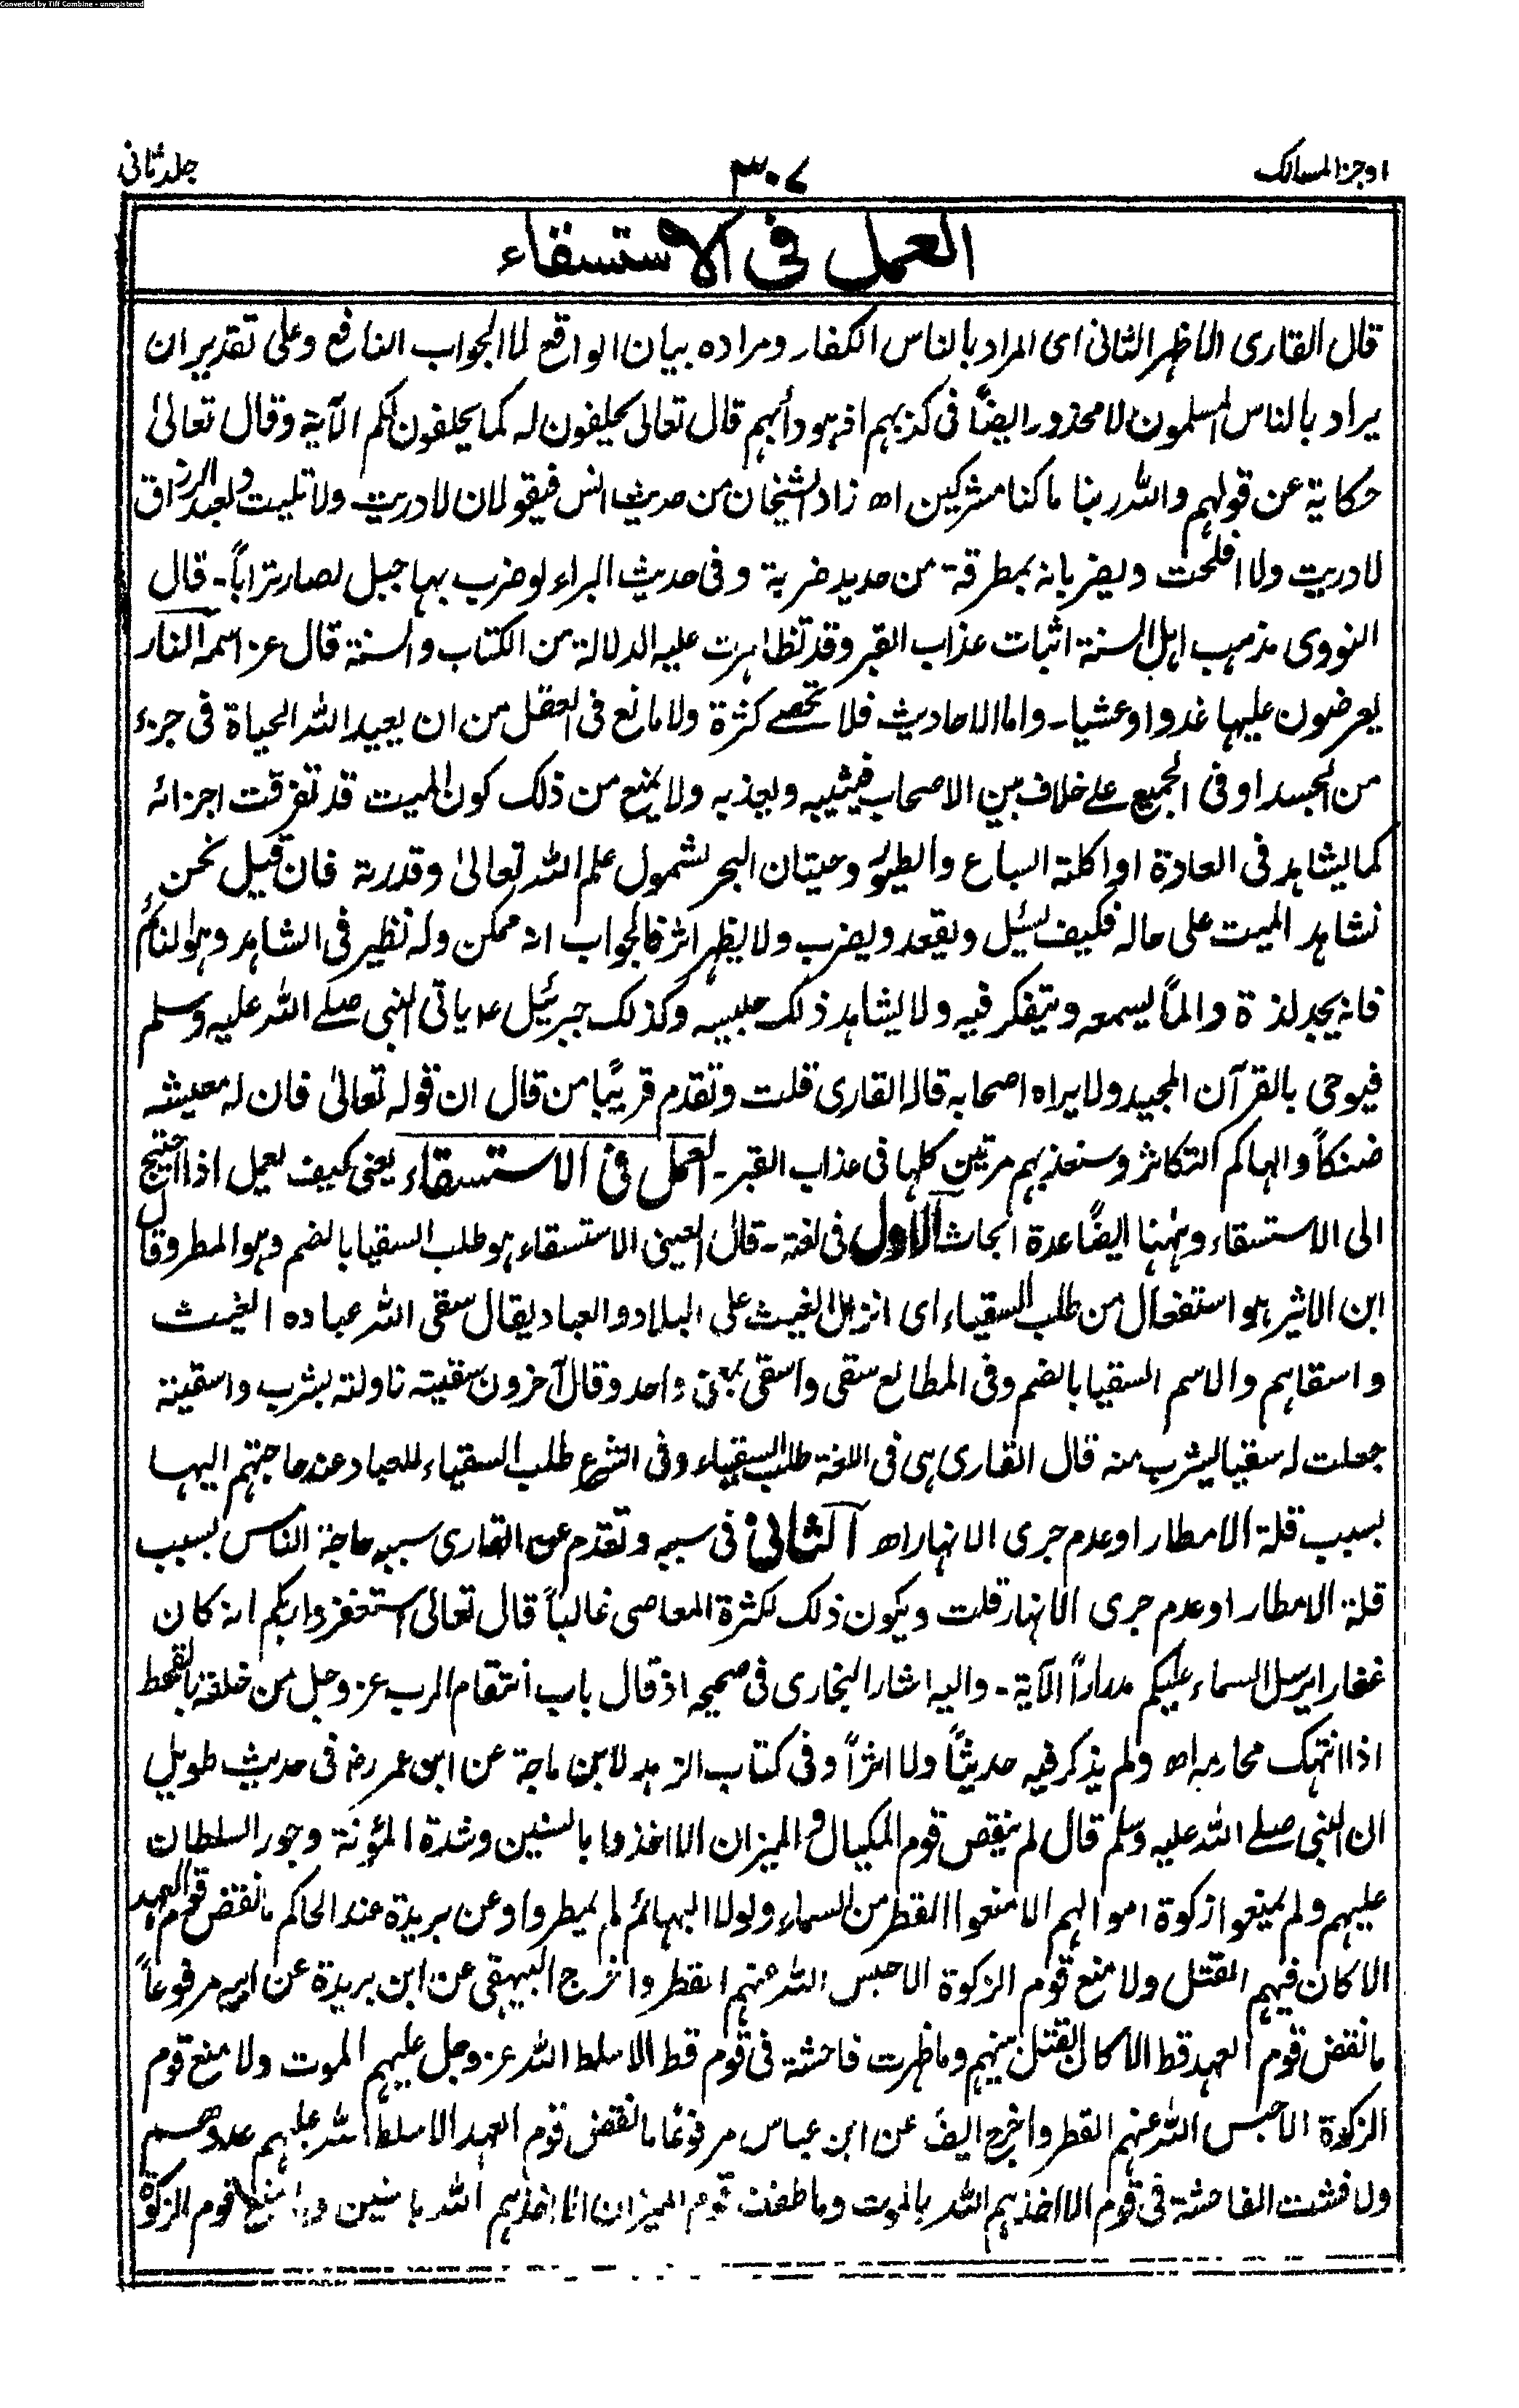 Converted by Tiff Combine - unregistered
اوجز المسالك
٣٠٧
جلد ثانى
العمل فى الاستسقاء
قال القارى الاظهر الثانى اى المراد بالناس الكفار ومراده بيان الواقع لا الجواب النافع وعلى تقدير ان
يراد بالناس المسلمون لا محذور ايضًا فى كذبهم اذ هو دأبهم قال تعالى يحلفون له كما يحلفون لكم الآية وقال تعالىٰ
حكاية عن قولهم والله ربنا ما كنا مشركين اھ زاد الشيخان من حديث انس فيقولان لا دريت ولا تليت ولعبد الرزاق
لا دريت ولا افلحت ويضربانه بمطرقة من حديد ضربة وفى حديث البراء لو ضرب بها جبل لصار تراباً۔ قال
النووى مذهب اهل السنة اثبات عذاب القبر وقد تظاهرت عليه الدلالة من الكتاب والسنة قال عز اسمه النار
يعرضون عليها غدوا وعشيا۔ واما الاحاديث فلا تحصے كثرة ولا مانع فى العقل من ان يعيد الله الحياة فى جزء
من الجسد او فى الجميع علے خلاف بين الاصحاب فيثيبه ويعذبه ولا يمنع من ذلك كون الميت قد تفرقت اجزائه
كما يشاهد فى العادة او اكلته السباع والطيور وحيتان البحر لشمول علم الله تعالىٰ وقدرته فان قيل نحن
نشاهد الميت على حاله فكيف يسئل ويقعد ويضرب ولا يظهر اثر فالجواب انه ممكن وله نظير فى الشاهد وهو النائم
فانه يجد لذة والمًا يسمعه ويتفكر فيه ولا يشاهد ذلك جليسه وكذلك جبرئيل ء ياتى النبى صلے الله عليه وسلم
فيوحى بالقرآن المجيد ولا يراه اصحابه قاله القارى قلت وتقدم قريبًا من قال ان قوله تعالىٰ فان له معيشة
ضنكاً والهاكم التكاثر وسنعذبهم مرتين كلها فى عذاب القبر۔ العمل فى الاستسقاء يعنى كيف يعمل اذا احتيج
الى الاستسقاء وههنا ايضًا عدة ابحاث الاول فى لغته۔ قال العينى الاستسقاء هو طلب السقيا بالضم وهو المطر وقال
ابن الاثير هو استفعال من طلب السقياء اى انزال الغيث على البلاد والعباد يقال سقى الله عباده الغيث
واسقاهم والاسم السقيا بالضم وفى المطالع سقى واسقى بمعنى واحد وقال آخرون سقيته ناولته يشرب واسقيته
جعلت له سقيا يشرب منه قال القارى هى فى اللغة طلب السقياء وفى الشرع طلب السقياء للعباد عند حاجتهم اليها
بسبب قلة الامطار او عدم جرى الانهار اھ الثانى فى سببه وتقدم عن القارى سببه حاجة الناس بسبب
قلة الامطار او عدم جرى الانهار قلت ويكون ذلك لكثرة المعاصى غالباً قال تعالى استغفروا ربكم انه كان
غفارا يرسل السماء عليكم مدراراً الآية۔ واليه اشار البخارى فى صحيحه اذ قال باب انتقام الرب عز وجل من خلقه بالقحط
اذا انتهك محارمه اھ ولم يذكر فيه حديثًا ولا اثراً وفى كتاب الزهد لابن ماجة عن ابن عمر رض فى حديث طويل
ان النبى صلے الله عليه وسلم قال لم ينقص قوم المكيال والميزان الا اخذوا بالسنين وشدة المؤنة وجور السلطان
عليهم ولم يمنعوا زكوة اموالهم الا منعوا القطر من السماء ولولا البهائم لم يمطروا وعن بريدة عند الحاكم ما نقض قوم العهد
الا كان فيهم القتل ولا منع قوم الزكوة الا حبس الله عنهم القطر واخرج البيهقى عن ابن بريدة عن ابيه مرفوعاً
ما نقض قوم العهد قط الا كان القتل بينهم وما ظهرت فاحشة فى قوم قط الا سلط الله عز وجل عليهم الموت ولا منع قوم
الزكوة الا حبس الله عنهم القطر واخرج ايضًا عن ابن عباس مرفوعًا ما نقض قوم العهد الا سلط الله عليهم عدوهم
ولا فشت الفاحشة فى قوم الا اخذهم الله بالموت وما طففت قوم الميزان الا اخذهم الله بالسنين وما منع قوم الزكوة